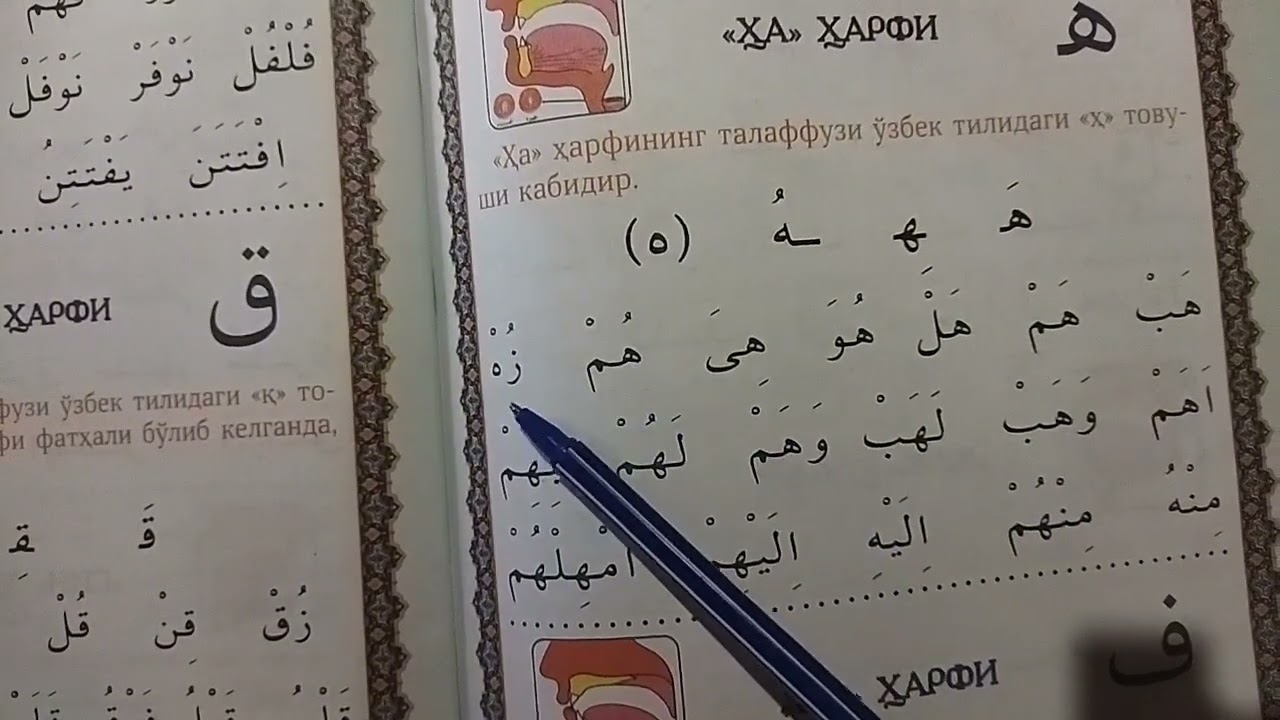 فُلْفُلْ نَوْفَرْ نَوْفَلْ
اِفْتَتَنَ يَفْتَتِنُ
ҲАРФИ ق
фузи ўзбек тилидаги «қ» то-
фи фатҳали бўлиб келганда,
قَ قِ
زُقْ قِنْ قُلْ
«ҲА» ҲАРФИ ه
«Ҳа» ҳарфининг талаффузи ўзбек тилидаги «ҳ» тову-
ши кабидир.
هَ ﻬِ ـهُ (ه)
هَبْ هَمْ هَلْ هُوَ هِىَ هُمْ زُهْ
اَهَمْ وَهَبْ لَهَبْ وَهَمْ لَهُمْ
مِنْهُ مِنْهُمْ اِلَيْهِ اِلَيْهِمْ اَمْهِلْهُمْ
ҲАРФИ ف